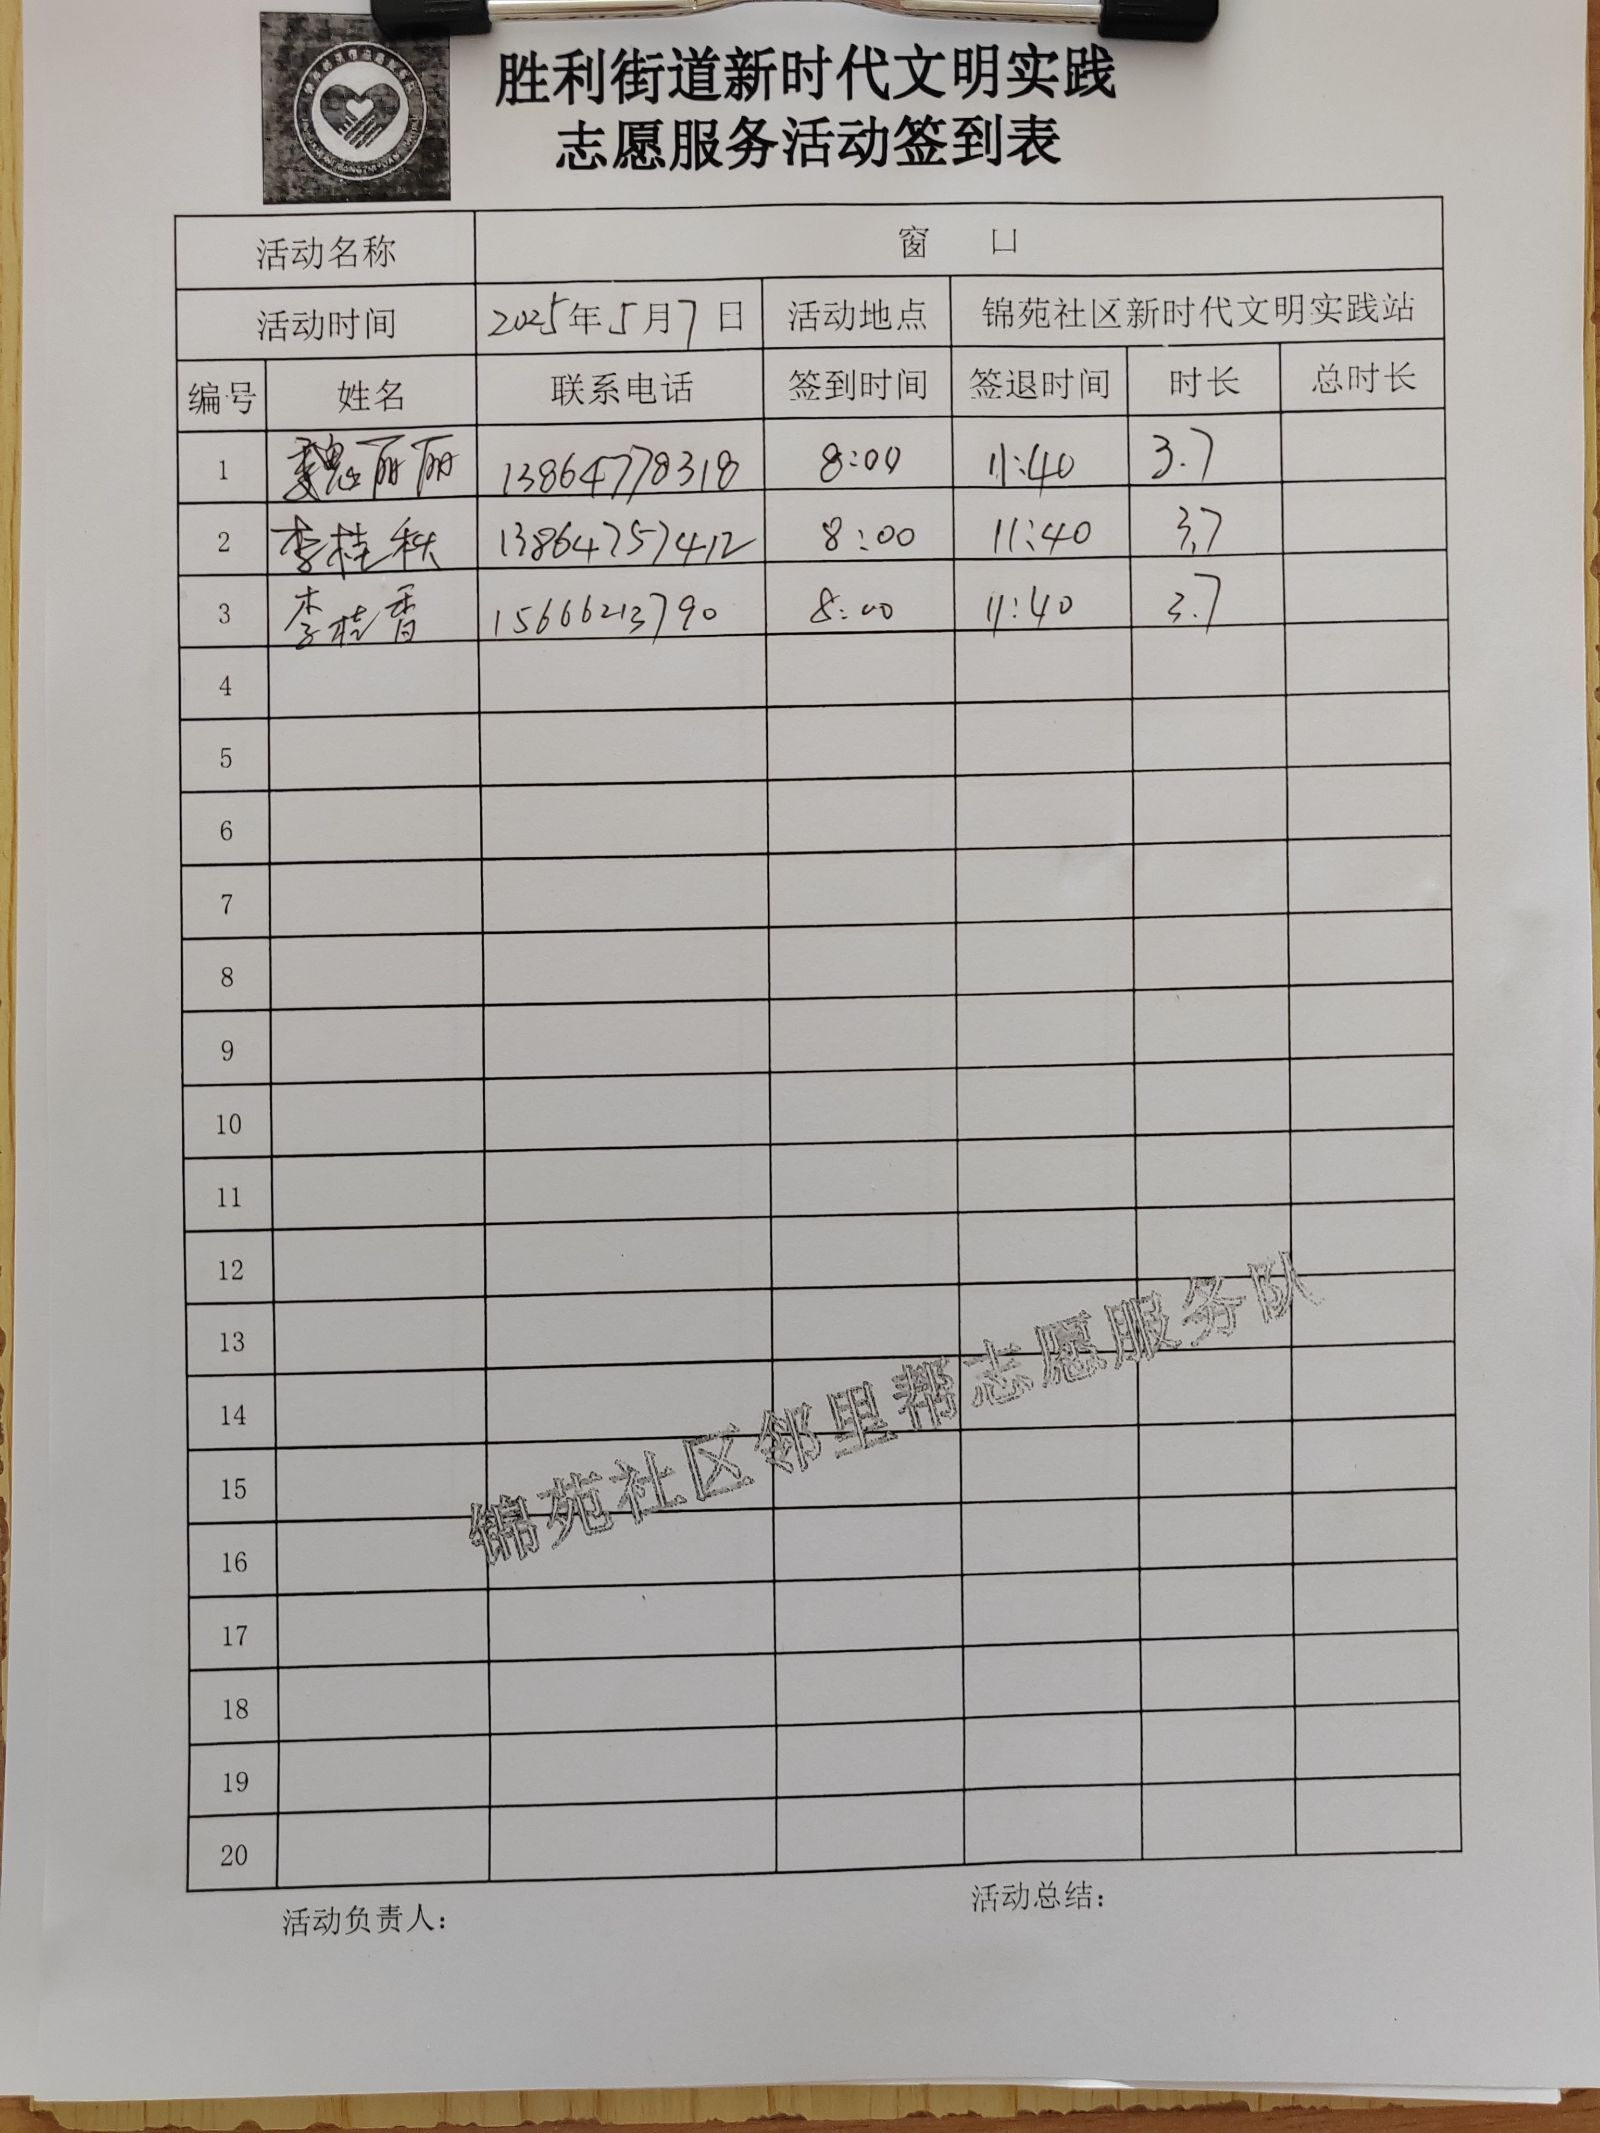 胜利街道新时代文明实践
志愿服务活动签到表
活动名称 窗 口
活动时间 2025年5月7日 活动地点 锦苑社区新时代文明实践站
编号 姓名 联系电话 签到时间 签退时间 时长 总时长
1 魏丽丽 13864778318 8:00 11:40 3.7
2 李桂秋 13864757412 8:00 11:40 3.7
3 李桂香 15666213790 8:00 11:40 3.7
4
5
6
7
8
9
10
11
12
13
14
15
16
17
18
19
20
锦苑社区邻里帮志愿服务队
活动负责人： 活动总结：